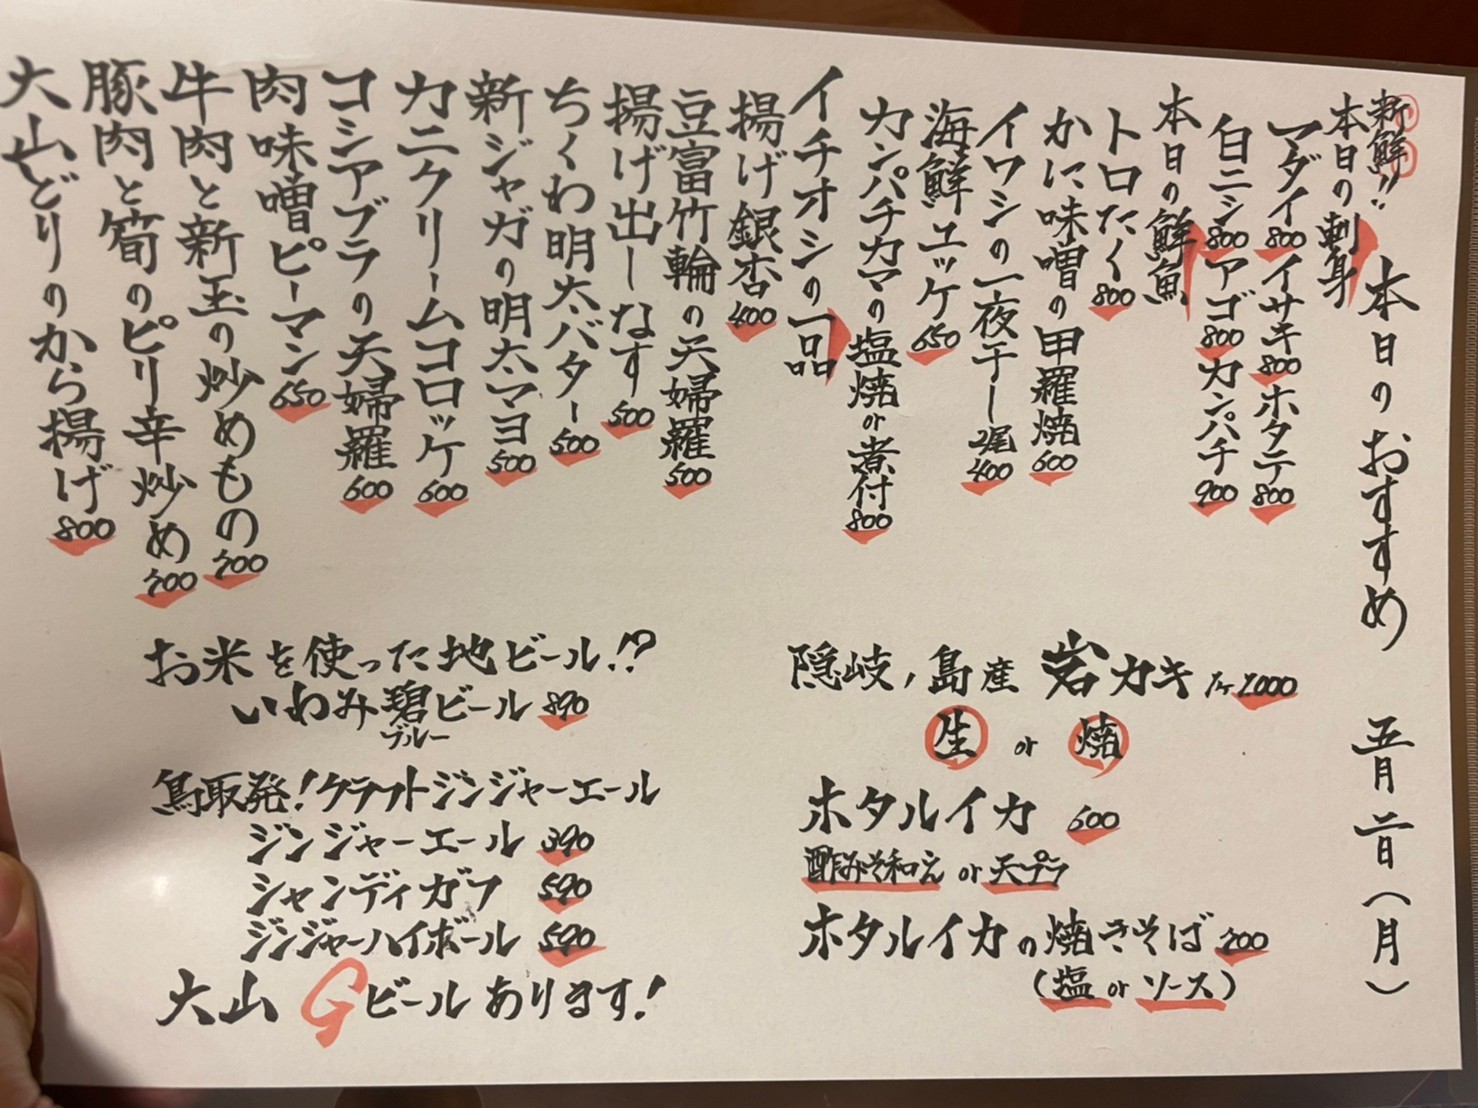 本日のおすすめ 五月二日（月）
新鮮!!
本日の刺身
マダイ800 イサキ800 ホタテ800
白ニシ800 アゴ800 カンパチ900
本日の鮮魚
トロたく800
かに味噌の甲羅焼600
イワシの一夜干し2尾400
海鮮ユッケ650
カンパチカマの塩焼or煮付800
イチオシの一品
揚げ銀杏400
豆富竹輪の天婦羅500
揚げ出しなす500
ちくわ明太バター500
新ジャガの明太マヨ500
カニクリームコロッケ600
コシアブラの天婦羅600
肉味噌ピーマン650
牛肉と新玉の炒めもの700
豚肉と筍のピリ辛炒め700
大山どりのから揚げ800
隠岐ノ島産 岩カキ 1ヶ1000
生 or 焼
ホタルイカ 600
酢みそ和え or 天プラ
ホタルイカの焼きそば 700
（塩 or ソース）
お米を使った地ビール!?
いわみ碧ビール 890
ブルー
鳥取発!クラフトジンジャーエール
ジンジャーエール 390
シャンディガフ 590
ジンジャーハイボール 590
大山Gビールあります!